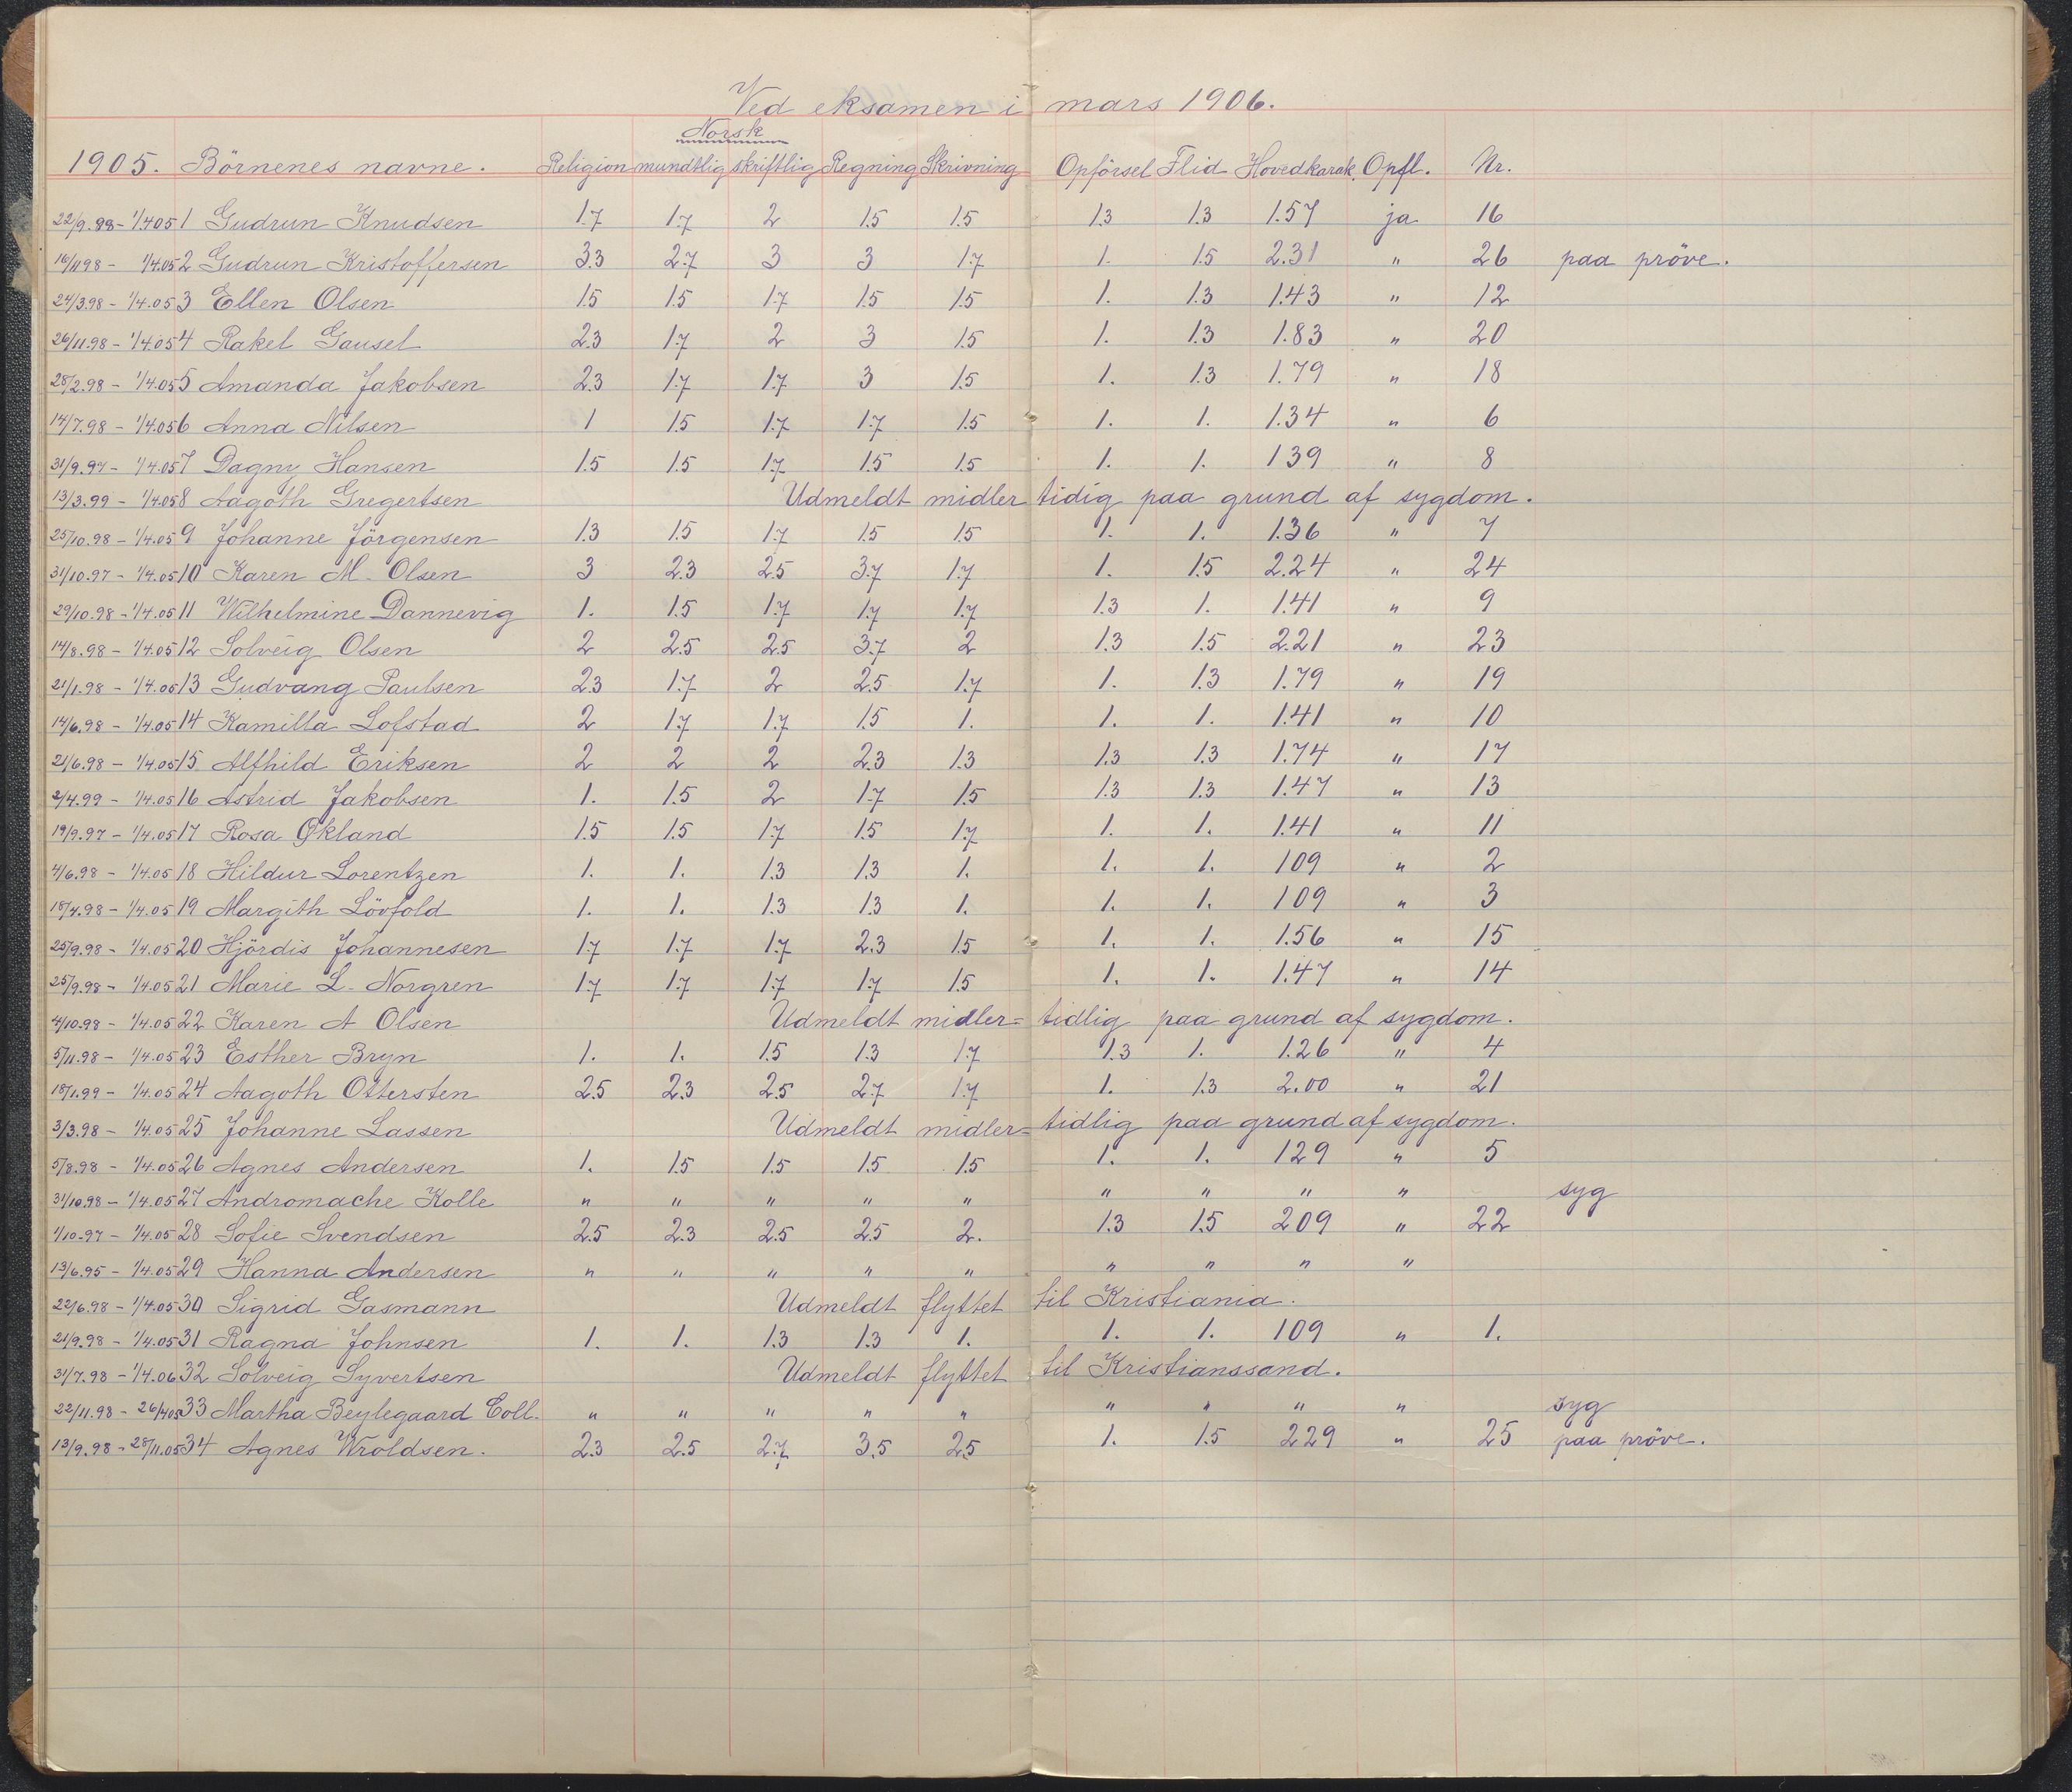 Ved eksamen i mars 1906.
Norsk
1905. Börnenes navne. Religion mundtlig skriftlig Regning Skrivning Opförsel Flid Hovedkarak. Opfl. Nr.
22/9.98 - 1/4 05 1 Gudrun Knudsen 1.7 1.7 2 1.5 1.5 1.3 1.3 1.57 ja 16
16/11 98 - 1/4.05 2 Gudrun Kristoffersen 3.3 2.7 3 3 1.7 1. 1.5 2.31 " 26 paa pröve.
24/3.98 - 1/4.05 3 Ellen Olsen 1.5 1.5 1.7 1.5 1.5 1. 1.3 1.43 " 12
26/11.98 - 1/4.05 4 Rakel Gausel 2.3 1.7 2 3 1.5 1. 1.3 1.83 " 20
28/2.98 - 1/4.05 5 Amanda Jakobsen 2.3 1.7 1.7 3 1.5 1. 1.3 1.79 " 18
14/7.98 - 1/4.05 6 Anna Nilsen 1 1.5 1.7 1.7 1.5 1. 1. 1.34 " 6
31/9.97 - 1/4.05 7 Dagny Hansen 1.5 1.5 1.7 1.5 1.5 1. 1. 139 " 8
13/3.99 - 1/4.05 8 Aagoth Gregertsen Udmeldt midlertidig paa grund af sygdom.
25/10.98 - 1/4.05 9 Johanne Jörgensen 1.3 1.5 1.7 1.5 1.5 1. 1. 1.36 " 7
31/10.97 - 1/4.05 10 Karen M. Olsen 3 2.3 2.5 3.7 1.7 1. 1.5 2.24 " 24
29/10.98 - 1/4.05 11 Wilhelmine Dannevig 1. 1.5 1.7 1.7 1.7 1.3 1. 1.41 " 9
14/8.98 - 1/4.05 12 Solveig Olsen 2 2.5 2.5 3.7 2 1.3 1.5 2.21 " 23
21/1.98 - 1/4.05 13 Gudvang Paulsen 2.3 1.7 2 2.5 1.7 1. 1.3 1.79 " 19
14/6.98 - 1/4.05 14 Kamilla Lofstad 2 1.7 1.7 1.5 1. 1. 1. 1.41 " 10
21/6.98 - 1/4.05 15 Alfhild Eriksen 2 2 2 2.3 1.3 1.3 1.3 1.74 " 17
2/4.99 - 1/4.05 16 Astrid Jakobsen 1. 1.5 2 1.7 1.5 1.3 1.3 1.47 " 13
19/9.97 - 1/4.05 17 Rosa Økland 1.5 1.5 1.7 1.5 1.7 1. 1. 1.41 " 11
4/6.98 - 1/4.05 18 Hildur Lorentzen 1. 1. 1.3 1.3 1. 1. 1. 109 " 2
18/4.98 - 1/4.05 19 Margith Lövfold 1. 1. 1.3 1.3 1. 1. 1. 109 " 3
25/9.98 - 1/4.05 20 Hjördis Johannesen 1.7 1.7 1.7 2.3 1.5 1. 1. 1.56 " 15
25/9.98 - 1/4.05 21 Marie L. Norgren 1.7 1.7 1.7 1.7 1.5 1. 1. 1.47 " 14
4/10.98 - 1/4.05 22 Karen A Olsen Udmeldt midler= tidlig paa grund af sygdom.
5/11.98 - 1/4.05 23 Esther Bryn 1. 1. 1.5 1.3 1.7 1.3 1. 1.26 " 4
18/1.99 - 1/4.05 24 Aagoth Ottersten 2.5 2.3 2.5 2.7 1.7 1. 1.3 2.00 " 21
3/3.98 - 1/4.05 25 Johanne Lassen Udmeldt midler= tidlig paa grund af sygdom.
5/8.98 - 1/4.05 26 Agnes Andersen 1. 1.5 1.5 1.5 1.5 1. 1. 129 " 5
31/10.98 - 1/4.05 27 Andromache Kolle " " " " " " " " " syg
1/10.97 - 1/4.05 28 Sofie Svendsen 2.5 2.3 2.5 2.5 2. 1.3 1.5 209 " 22
13/6.95 - 1/4.05 29 Hanna Andersen " " " " " " " " "
22/6.98 - 1/4.05 30 Sigrid Gasmann Udmeldt flyttet til Kristiania.
21/9.98 - 1/4.05 31 Ragna Johnsen 1. 1. 1.3 1.3 1. 1. 1. 109 " 1.
31/7.98 - 1/4.06 32 Solveig Syvertsen Udmeldt flyttet til Kristianssand.
22/11.98 - 26/4 05 33 Martha Beylegaard Coll. " " " " " " " " " syg
13/9.98 - 28/11.05 34 Agnes Wroldsen. 2.3 2.5 2.7 3.5 2.5 1. 1.5 229 " 25 paa pröve.